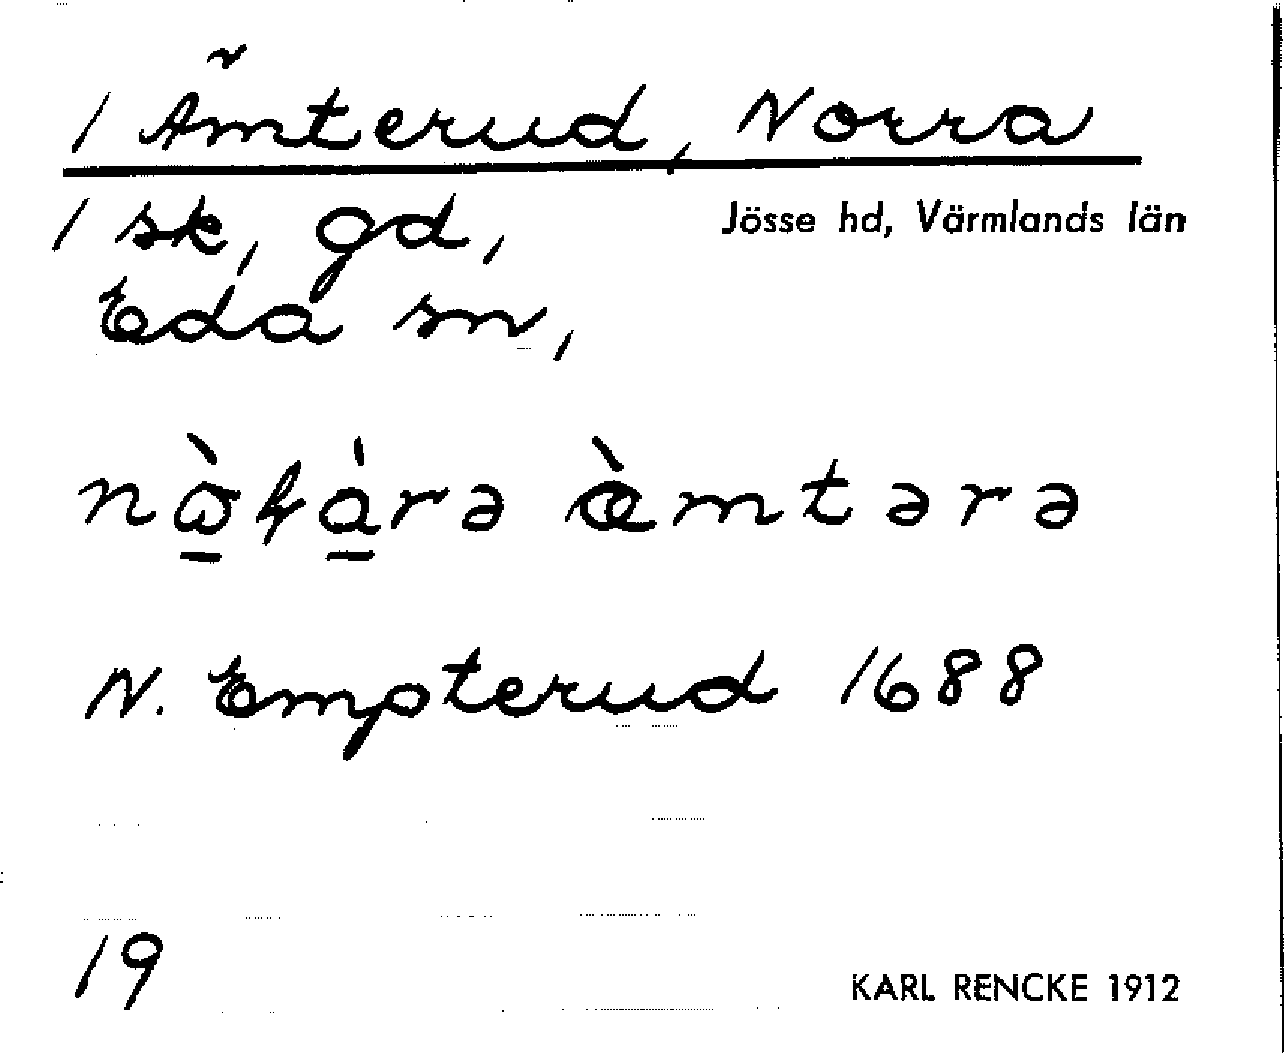 1 Ämterud, Norra
1 sk, gd, Jösse hd, Värmlands län
Eda sn,
æ̀mtərə
N. Empterud 1688
19 KARL RENCKE 1912